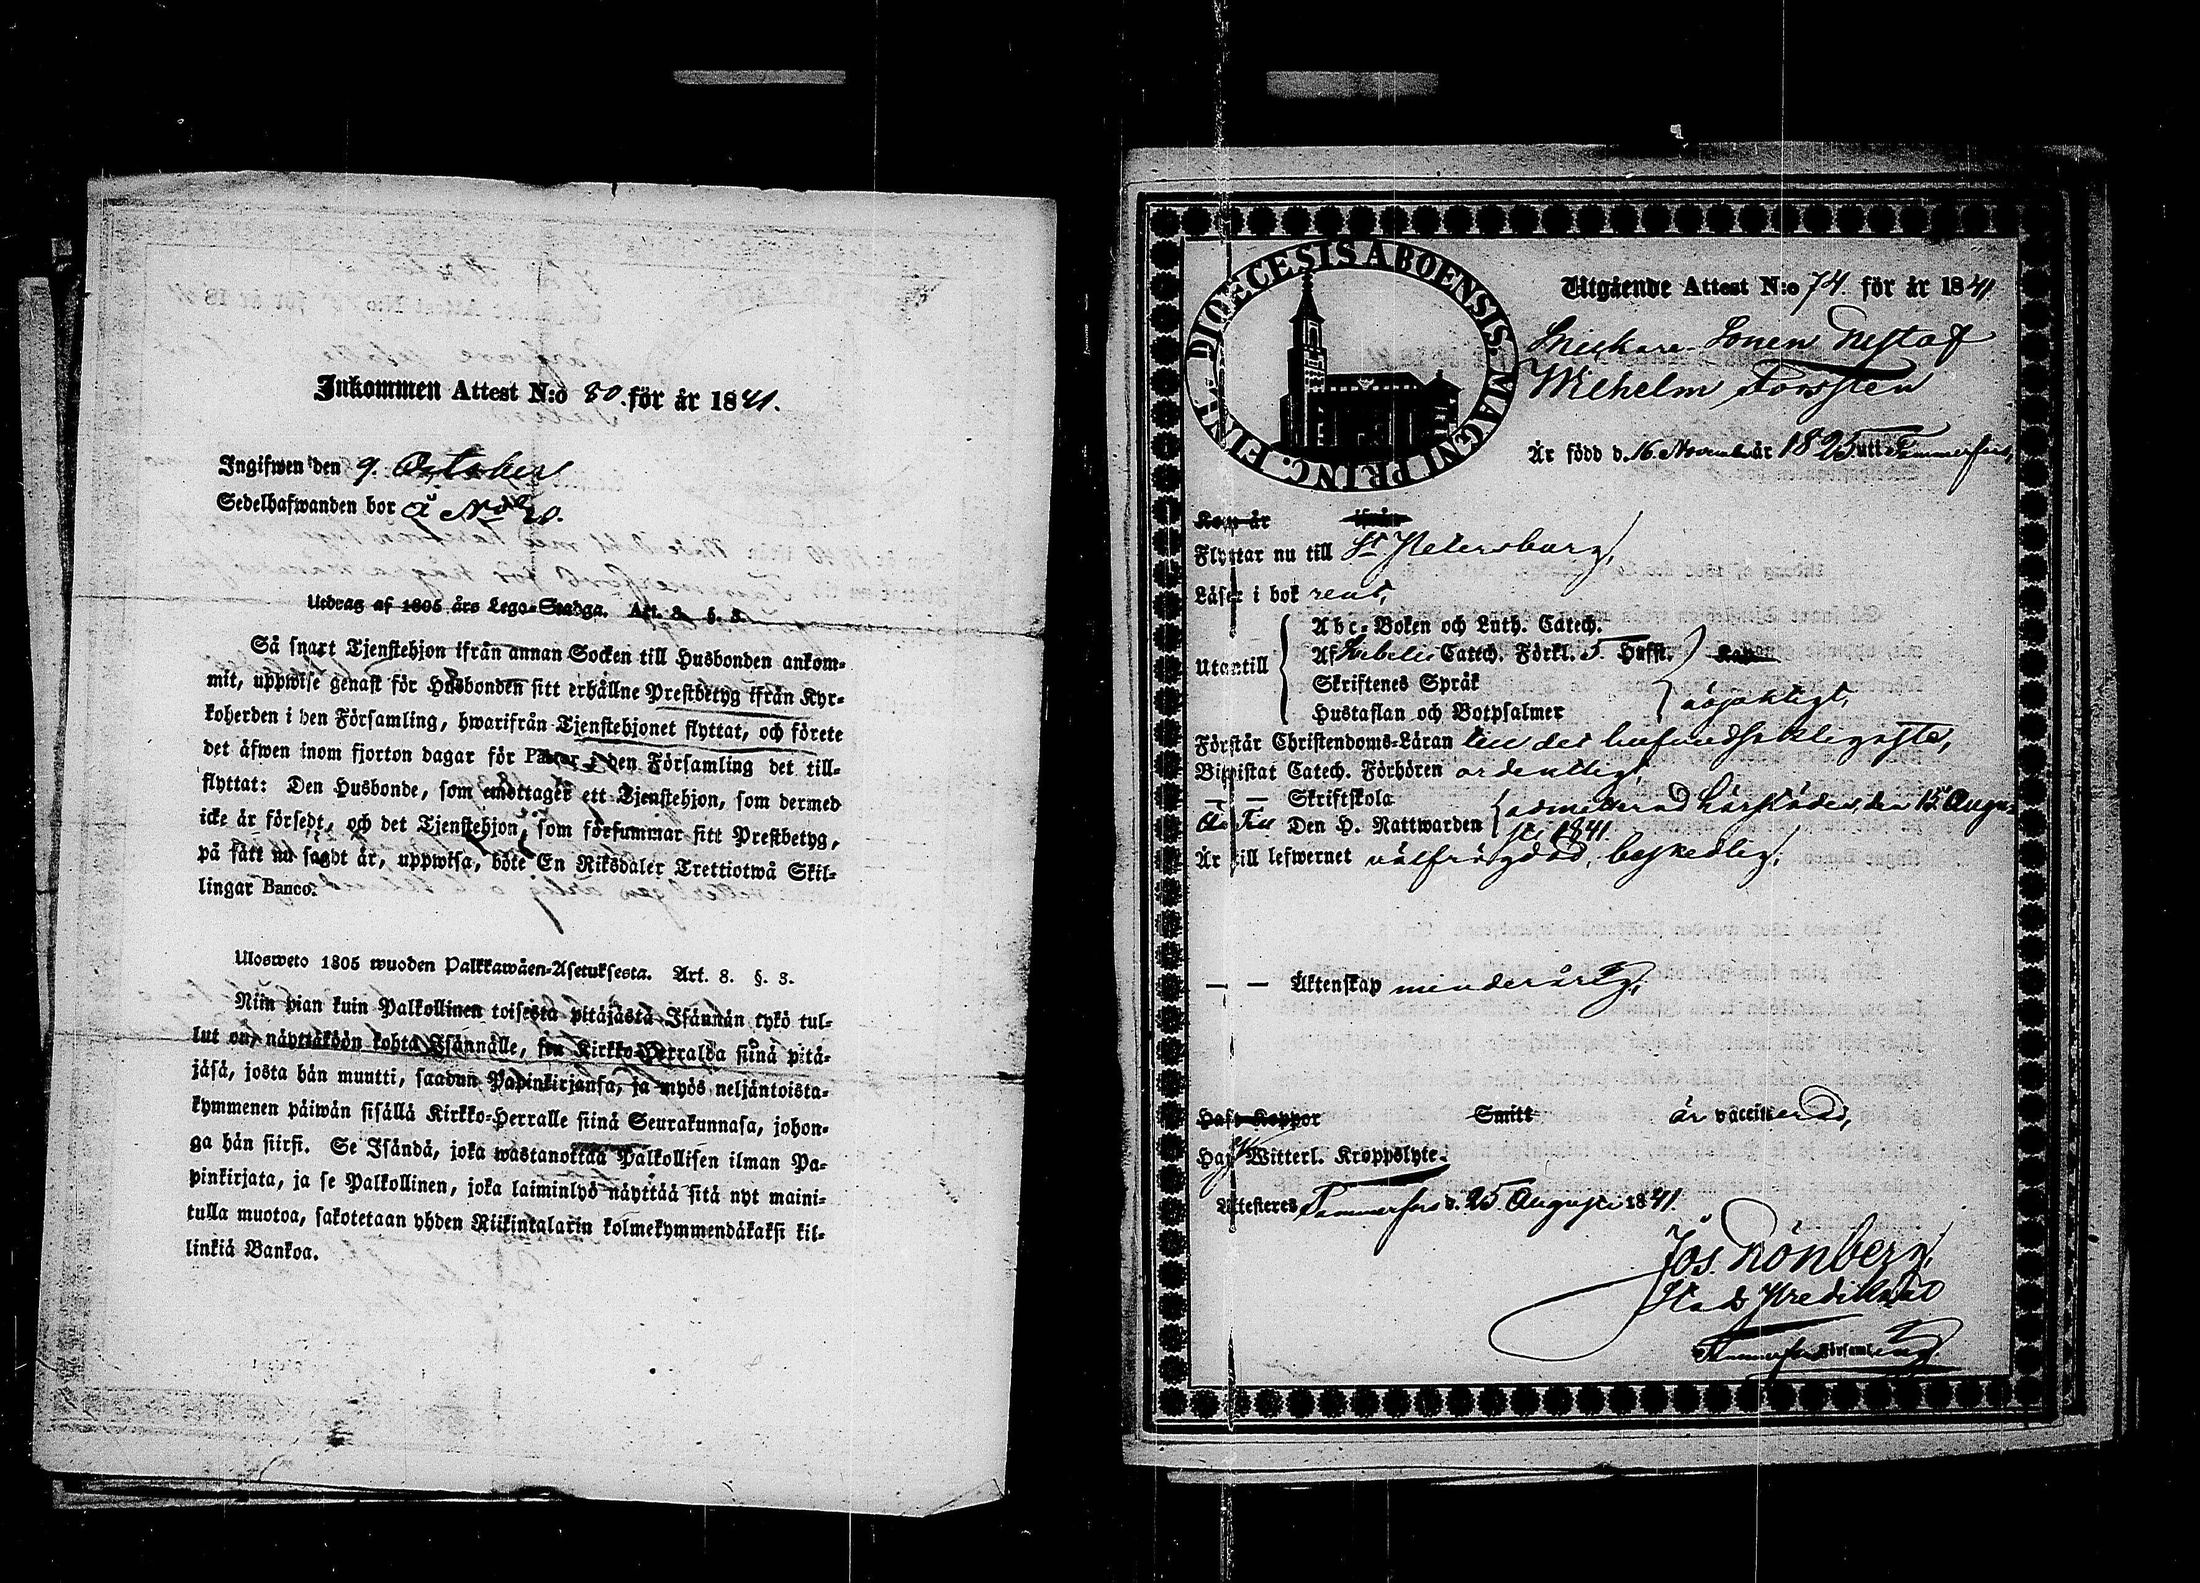 Inkommen Attest N:o 80. för år 1841.
Ingifwen den 9. October
Sedelhafwanden bor å
Utdrag af 1805 års Lego-Stadga. Art. 8. §. 3.
Så snart Tjenstehjon ifrån annan Socken till Husbonden ankom-
mit, uppwise genast för Husbonden sitt erhållne Prestbetyg ifrån Kyr-
koherden i den Församling, hwarifrån Tjenstehjonet flyttat, och förete
det äfwen inom fjorton dagar för Pastor i den Församling det till-
flyttat: Den Husbonde, som emottager ett Tjenstehjon, som dermed
icke är försedt, och det Tjenstehjon, som försummar sitt Prestbetyg,
på sätt nu sagdt är, uppwisa, böte En Riksdaler Trettiotwå Skil-
lingar Banco.
Ulosweto 1805 wuoden Palkkawäen-Asetuksesta. Art. 8. §. 3.
Niin pian kuin Palkollinen toisesta pitäjästä Isännän tykö tul-
lut on, näyttäköön kohta Isännälle, sen Kirkko-Herralda siinä pitä-
jäsä, josta hän muutti, saadun Papinkirjansa, ja myös neljäntoista-
kymmenen päiwän sisällä Kirkko-Herralle siinä Seurakunnasa, johon-
ga hän siirsi. Se Isändä, joka wastanottaa Palkollisen ilman Pa-
pinkirjata, ja se Palkollinen, joka laiminlyö näyttää sitä nyt maini-
tulla muotoa, sakotetaan yhden Riikintalarin kolmekymmendäkaksi kil-
linkiä Bankoa.
FINL. DIOECESIS ABOENSIS. MAGNI PRINC.
Utgående Attest N:o 74 för år 1841
Snickare Sonen Gustaf
Wilhelm Forsstén
Är född d. 16 November år 1825 uti Tammerfors,
Kom år ifrån
Flyttar nu till St Petersburg,
Läser i bok rent,
Utantill
Abc-Boken och Luth. Catech.
Af Svebelii Catech. Förkl. 5 Hufst.
Skriftenes Språk
Hustaflan och Botpsalmer
Förstår Christendoms-Läran till det
Bippistat Catech. Förhören ordentligt,
— — Skriftskola
Den H. Nattwarden admitterad härstädes, den 15 Augu-
sti 1841.
Är till lefwernet välfrägdad, beskedlig,
— — Äktenskap minderårig,
Haft Koppor Smitt är vaccinerad,
Witterl. Kroppslyte.
Attesteres Tammerfors d. 25 Augusti 1841.
Jos. Grönberg,
Stads Predikant
Tammerfors Församling.